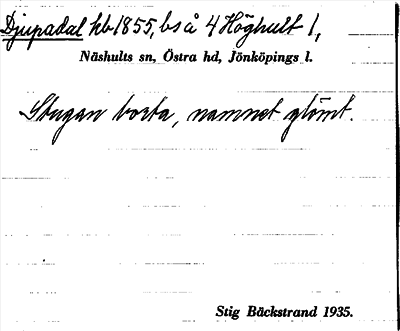 Djupadal kb 1855, bs å 4 Höghult 1,
Näshults sn, Östra hd, Jönköpings l.
Stugan borta, namnet glömt.
Stig Bäckstrand 1935.